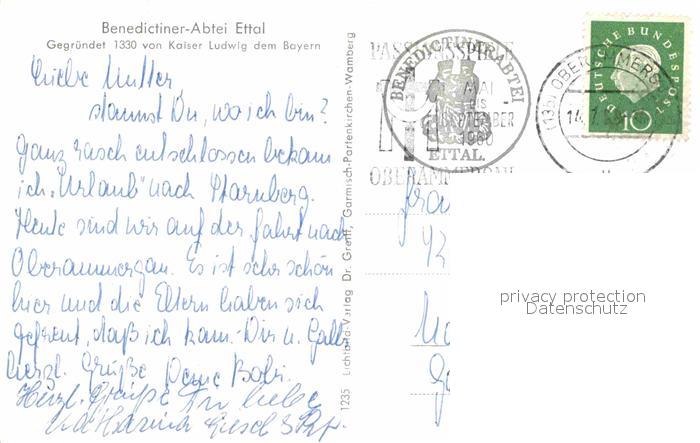 Benedictiner-Abtei Ettal
Gegründet 1330 von Kaiser Ludwig dem Bayern
Liebe Mutter,
staunst Du, wo ich bin?
Ganz rasch entschlossen bekam
ich "Urlaub" nach Starnberg.
Heute sind wir auf der Fahrt nach
Oberammergau. Es ist sehr schön
hier und die Eltern haben sich
gefreut, daß ich kam. Dir u.
herzl. Grüße Deine
Herzl. Grüße
Katharina
1235 Lichtbild-Verlag Dr. Grenff, Garmisch-Partenkirchen-Wamberg
PASSIONSSPIELE
MAI
BIS
SEPTEMBER
1960
OBERAMMERGAU
BENEDICTINERABTEI
ETTAL.
(13b) OBERAMMERG
14.7.
DEUTSCHE BUNDESPOST
10
Frau
privacy protection
Datenschutz